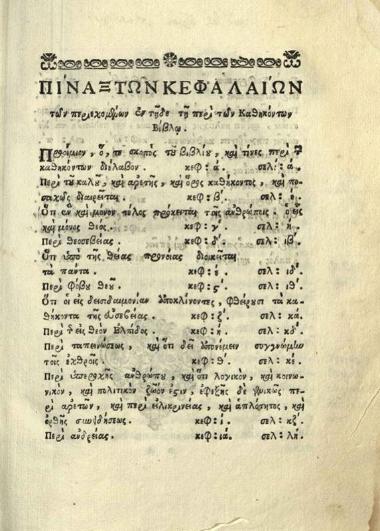 ΠΙΝΑΞ ΤΩΝ ΚΕΦΑΛΑΙΩΝ
τῶν περιεχομένων ἐν τῇδε τῇ περὶ τῶν Καθηκόντων
Βίβλῳ.
Προοίμιον, ὅ, τε σκοπὸς τοῦ βιβλίου, καὶ τίνες περὶ τ̃
καθηκόντων διέλαβον. κεφ: ά. σελ: ά.
Περὶ τοῦ καλοῦ, καὶ ἀρετῆς, καὶ ὅρος καθήκοντος, καὶ πο-
σαχῶς διαιρεῖται. κεφ: β΄. σελ:
Ὅτι ἓν καὶ μόνον τέλος πρόκειται τοῖς ἀνθρώποις. ὁ εἷς
καὶ μόνος Θεός. κεφ: γ΄. σελ: ή.
Περὶ Θεοσεβείας. κεφ: δ΄. σελ: ιβ΄.
Ὅτι ὑπὸ τῆς θείας προνοίας διοικεῖται
τὰ πάντα. κεφ: έ. σελ: ιδ΄.
Περὶ Φόβου Θεοῦ. κεφ: ς΄. σελ: ιθ΄.
Ὅτι οἱ εἰς δεισιδαιμονίαν ὑποκλίνοντες, φθείρουσι τὰ κα-
θήκοντα τῆς εὐσεβείας. κεφ: ζ΄. σελ: κά.
Περὶ τ̃ εἰς Θεὸν Ἐλπίδος. κεφ: ή. σελ: κδ΄.
Περὶ ταπεινώσεως, καὶ ὅτι δεῖ ἀπονέμειν συγγνώμην
τοῖς ἐχθροῖς. κεφ: θ΄. σελ: κέ.
Περὶ ὑπεροχῆς ἀνθρώπου, καὶ ὅτι λογικὸν, καὶ κοινω-
νικὸν, καὶ πολιτικὸν ζῶον ἐστιν, ἐφεξῆς δὲ γενικῶς πε-
ρὶ ἀρετῶν, καὶ περὶ εἰλικρινείας, καὶ ἁπλότητος, καὶ
ὀρθῆς συνειδήσεως. κεφ: ί. σελ: κζ΄.
Περὶ ἀνδρείας. κεφ: ιά. σελ: λή.